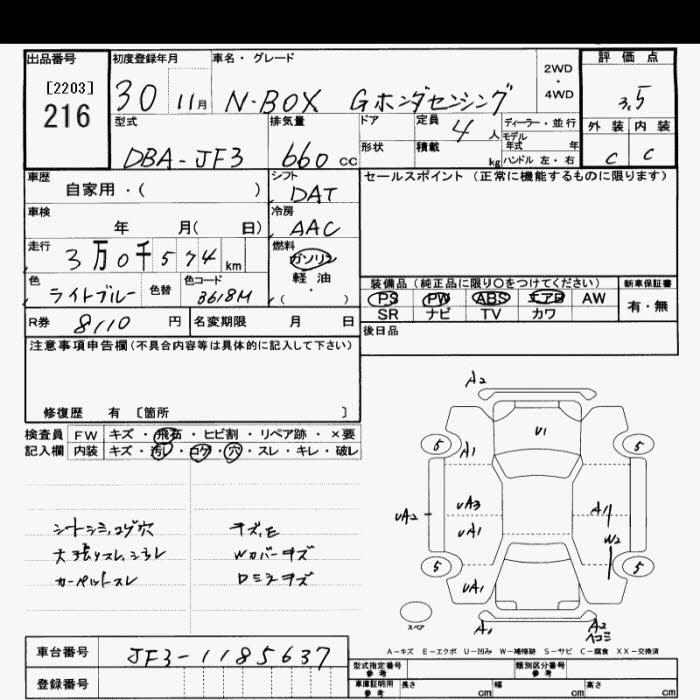 出品番号 初度登録年月 車名・グレード 評価点
[2203]
216
30 11月 N-BOX Gホンダセンシング 2WD・4WD 3.5
型式 排気量 ドア 定員 ディーラー・並行 外装 内装
DBA-JF3 660cc 4人 モデル年式 年 C C
形状 積載 kg ハンドル 左・右
車歴 シフト セールスポイント (正常に機能するものに限ります)
自家用・( ) DAT
車検 冷房
年 月( 日) AAC
走行 燃料
3万0千574km ガソリン
軽油
・( )
色 色替 色コード 装備品 (純正品に限り○をつけてください) 新車保証書
ライトブルー B618M PS PW ABS エアB AW 有・無
SR ナビ TV カワ
R券 8110円 名変期限 月 日 後日品
注意事項申告欄(不具合内容等は具体的に記入して下さい)
修復歴 有 〔箇所 〕
検査員 FW キズ・飛石・ヒビ割・リペア跡・×要
記入欄 内装 キズ・汚レ・コゲ・穴・スレ・キレ・破レ
シートシミ,コゲ穴 キズ,モ
天張りスレ,シミレ Wカバーキズ
カーペットスレ ロミラーキズ
A2
U1
5 A1 5
UA2 UA3 A1
UA1 W2
5 UA1 5
スペア A1 A2
ヘコミ
A-キズ E-エクボ U-凹み W-補修跡 S-サビ C-腐食 XX-交換済
車台番号 JF3-1185637
登録番号
型式指定番号 参考 類別区分番号 参考
車庫証明用 参考 長さ cm 幅 cm 高さ cm